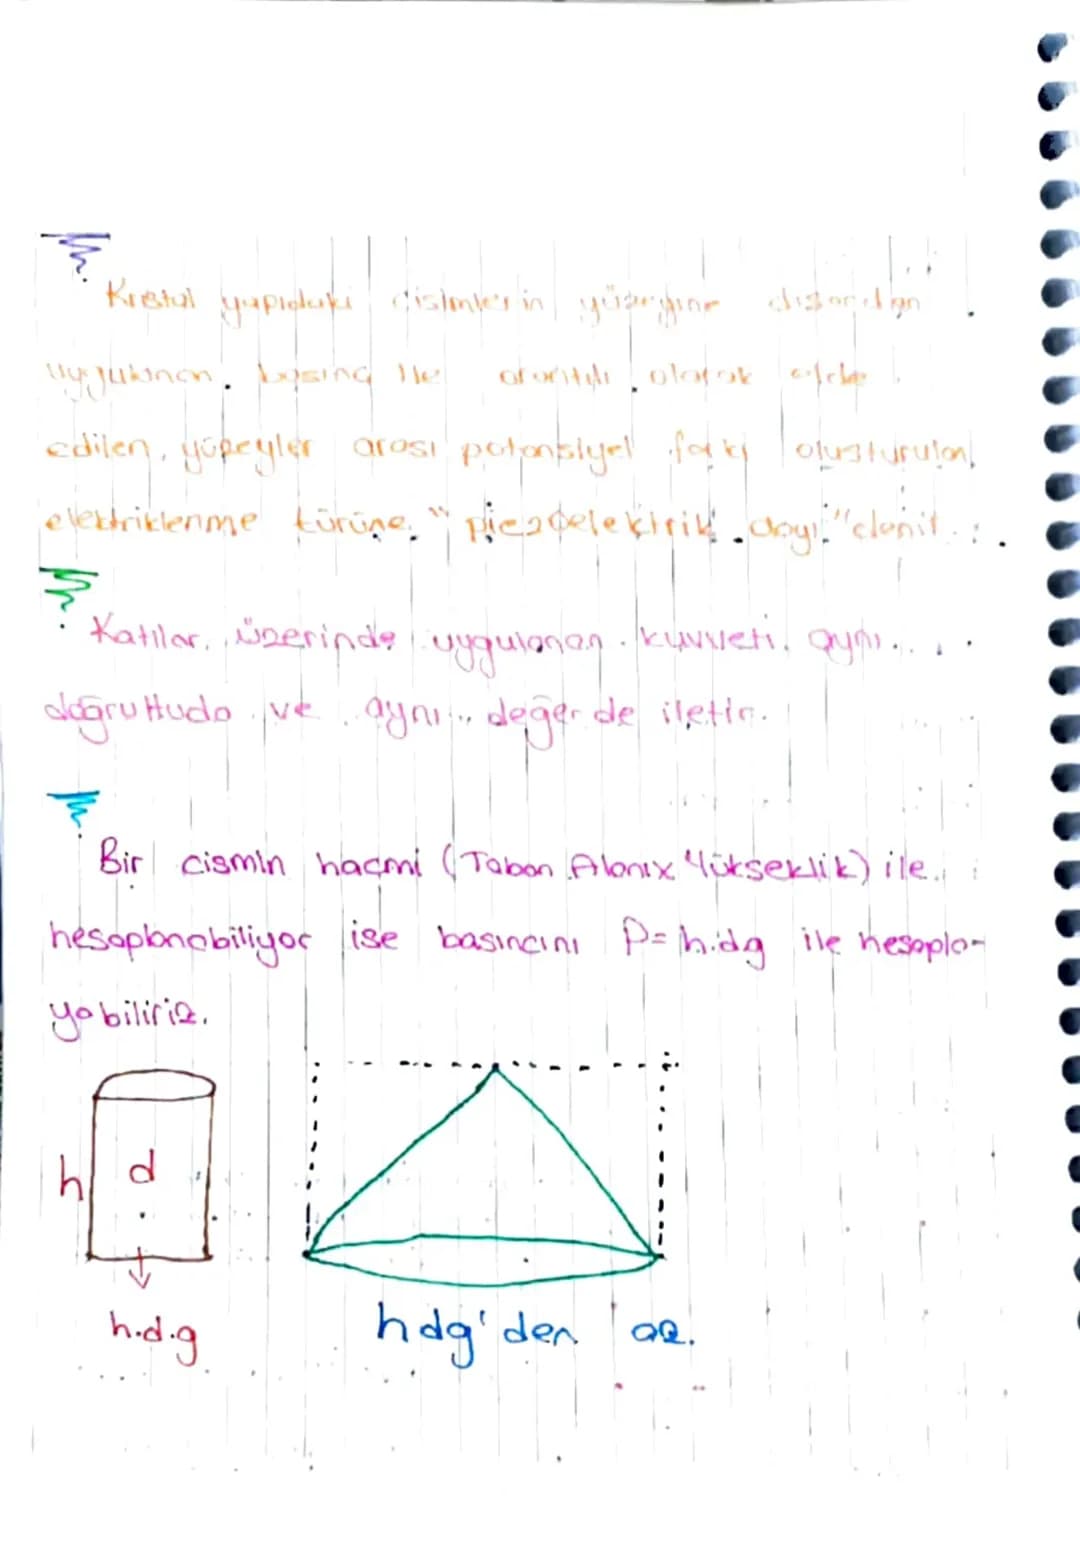 Kristal yapıdaki cisimlerin yüzeyine dışarıdan
uygulanan basınç ile orantılı olarak elde
edilen, yüzeyler arası potansiyel farkı oluşturulan
elektriklenme türüne "piezoelektrik olayı" denir.
Katılar, üzerinde uygulanan kuvveti, aynı
doğrultuda ve aynı değerde iletir.
Bir cismin hacmi (Taban Alanı x Yükseklik) ile
hesaplanabiliyor ise basıncını P=h.dg ile hesapla-
yabiliriz.
h d
h.d.g
hdg'den az.